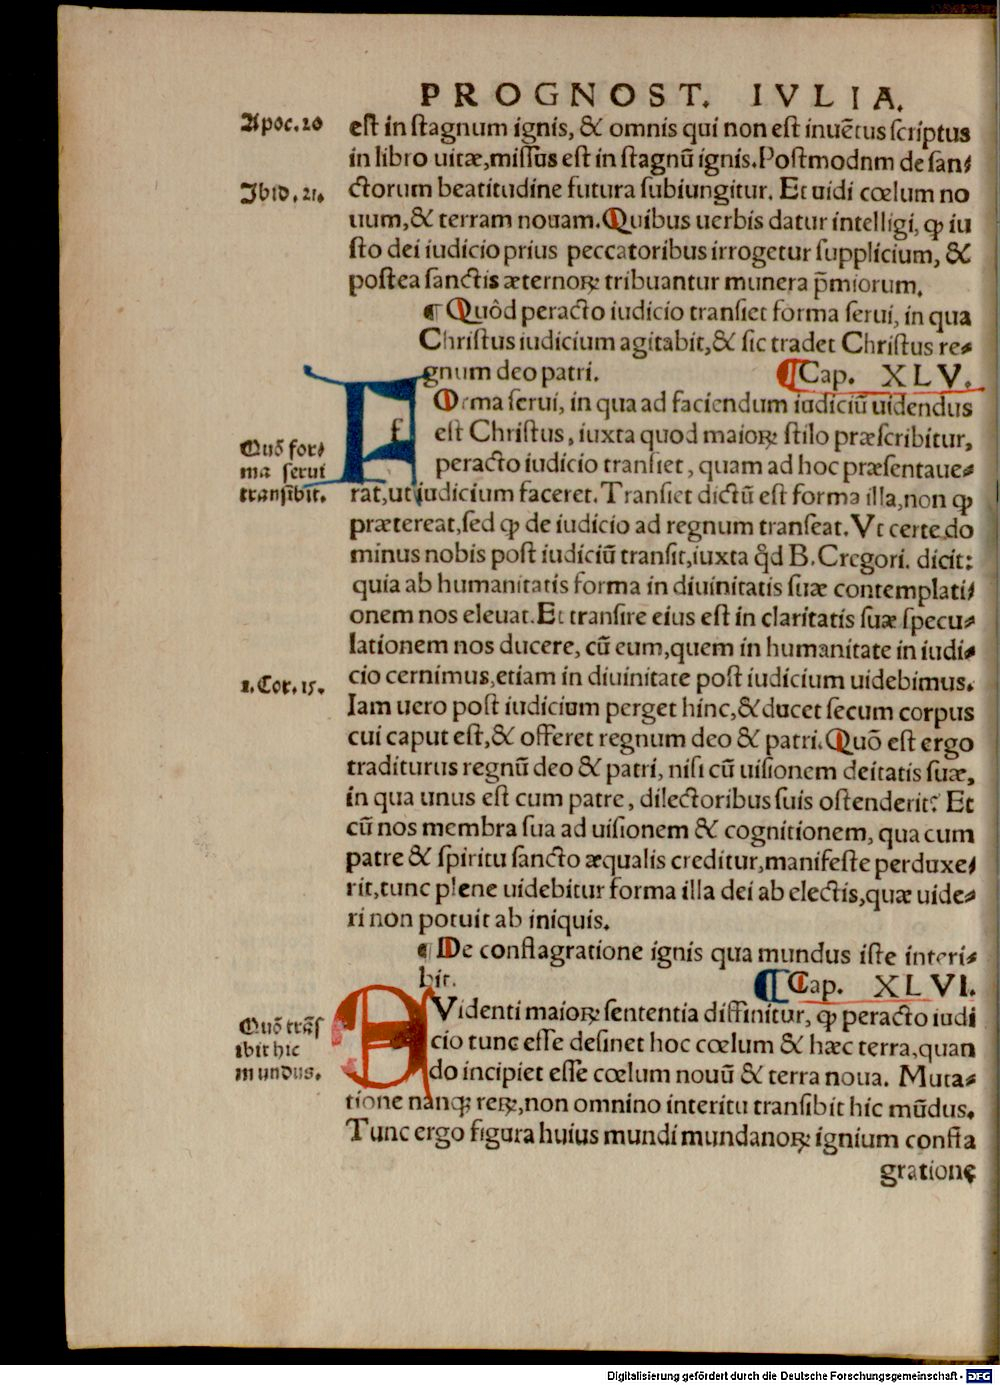 PROGNOST. IVLIA.
Apoc.20
eſt in ſtagnum ignis, & omnis qui non eſt inuẽtus ſcriptus
in libro uitæ,miſſus eſt in ſtagnũ ignis.Poſtmodnm de ſan⸗
Ibid. 21.
ctorum beatitudine futura ſubiungitur. Et uidi cœlum no
uum,& terram nouam.Quibus uerbis datur intelligi, ꝙ iu
ſto dei iudicio prius peccatoribus irrogetur ſupplicium, &
poſtea ſanctis æternoꝝ tribuantur munera p̃miorum.
¶ Quôd peracto iudicio tranſiet forma ſerui, in qua
Chriſtus iudicium agitabit,& ſic tradet Chriſtus re⸗
gnum deo patri. ¶Cap. XLV.
F
f
Orma ſerui, in qua ad faciendum iudiciũ uidendus
eſt Chriſtus, iuxta quod maioꝝ ſtilo præſcribitur,
Quõ for⸗
ma ſerui
tranſibit.
peracto iudicio tranſiet, quam ad hoc præſentaue⸗
rat,ut iudicium faceret.Tranſiet dictũ eſt forma illa,non ꝙ
prætereat,ſed ꝙ de iudicio ad regnum tranſeat. Vt certe do
minus nobis poſt iudiciũ tranſit,iuxta qd̃ B.Gregori. dicit:
quia ab humanitatis forma in diuinitatis ſuæ contemplati⸗
onem nos eleuat.Et tranſire eius eſt in claritatis ſuæ ſpecu⸗
lationem nos ducere, cũ eum,quem in humanitate in iudi⸗
1.Cor.15.
cio cernimus,etiam in diuinitate poſt iudicium uidebimus.
Iam uero poſt iudicium perget hinc,& ducet ſecum corpus
cui caput eſt,& offeret regnum deo & patri.Quõ eſt ergo
traditurus regnũ deo & patri, niſi cũ uiſionem deitatis ſuæ,
in qua unus eſt cum patre, dilectoribus ſuis oſtenderit? Et
cũ nos membra ſua ad uiſionem & cognitionem, qua cum
patre & ſpiritu ſancto æqualis creditur,manifeſte perduxe⸗
rit,tunc plene uidebitur forma illa dei ab electis,quæ uide⸗
ri non potuit ab iniquis.
¶ De conflagratione ignis qua mundus iſte interi⸗
bit. ¶Cap. XLVI.
E
Videnti maioꝝ ſententia diffinitur, ꝙ peracto iudi
Quõ trãſ
ibit hic
mundus.
cio tunc eſſe deſinet hoc cœlum & hæc terra,quan
do incipiet eſſe cœlum nouũ & terra noua. Muta⸗
tione nanqꝫ reꝝ,non omnino interitu tranſibit hic mũdus.
Tunc ergo figura huius mundi mundanoꝝ ignium confla
gratione
Digitalisierung gefördert durch die Deutsche Forschungsgemeinschaft - DFG